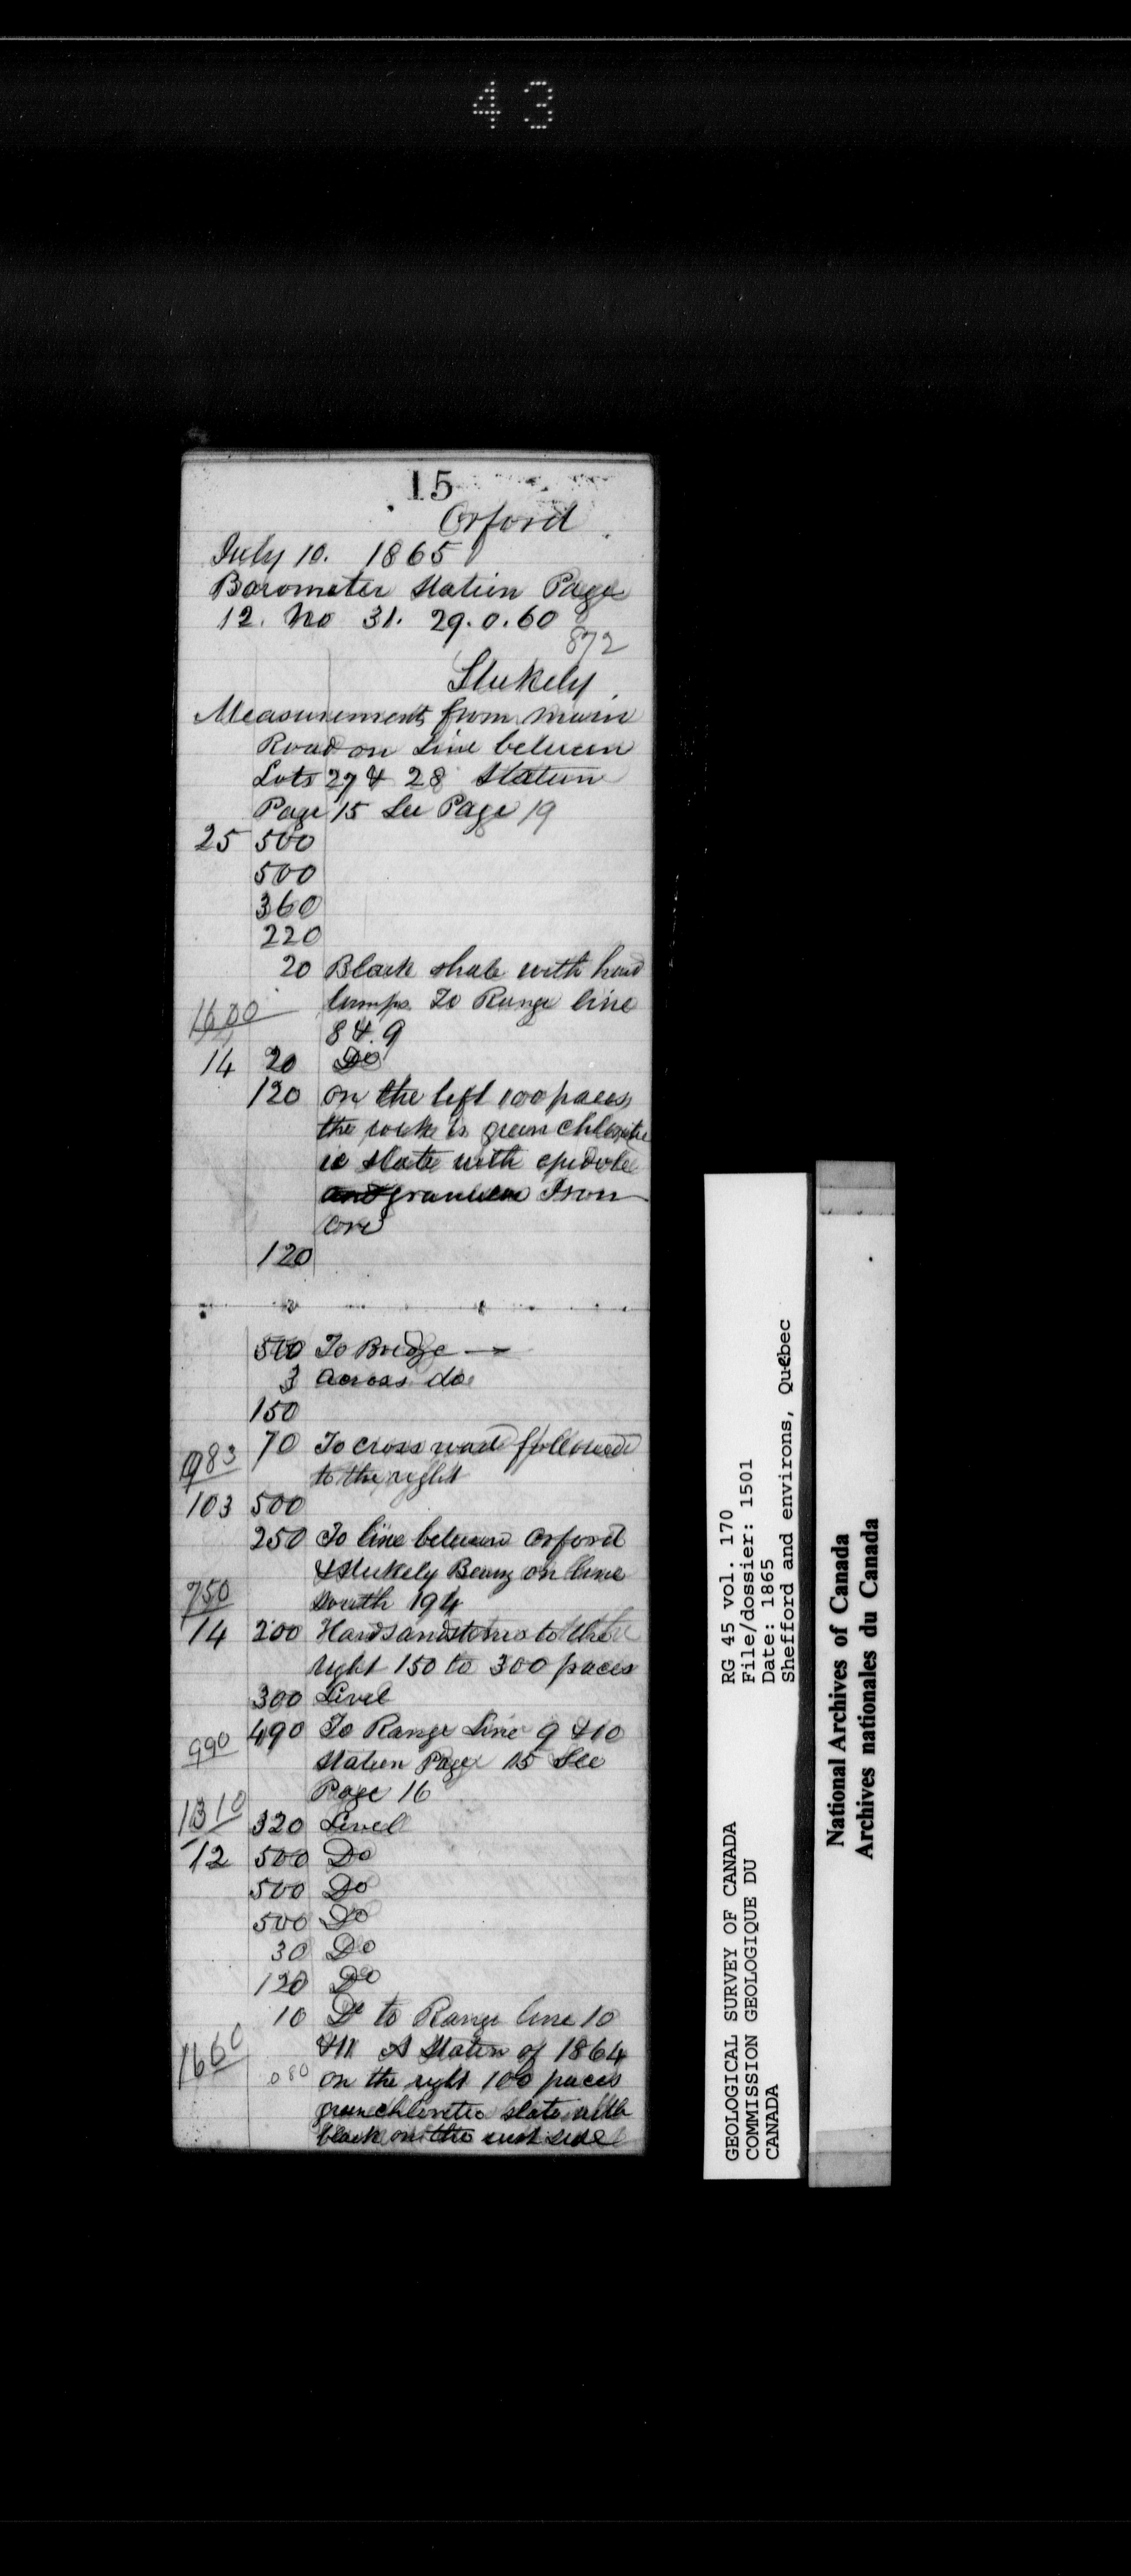 43
15
Orford
July 10. 1865
Barometer Station Page
12. No 31. 29.0.60
872
Stukely
Measurements from main
Road on Line between
Lots 27 & 28 Station
Page 15 See Page 19
25 500
500
360
220
20 Black shale with hard
lumps To Range line
1600
8 & 9
14 20 Do
120 on the left 100 paces
the rock is green chlorite
ic slate with epidote
and Iron
ore
120
500 To Bridge —
3 across do
150
70 To cross road followed
983
to the right
103 500
250 To line between Orford
& Stukely Bearing on line
750
South 194
14 200 Hard sandstone to the
right 150 to 300 paces
300 Level
490 To Range Line 9 & 10
990
Station Page 15 See
Page 16
1310
320 Level
12 500 Do
500 Do
500 Do
30 Do
120 Do
10 Do to Range line 10
& 11 A Station of 1864
1660
080 on the right 100 paces
green chloritic slate with
black on the east side
GEOLOGICAL SURVEY OF CANADA
COMMISSION GEOLOGIQUE DU
CANADA
RG 45 vol. 170
File/dossier: 1501
Date: 1865
Shefford and environs, Quebec
National Archives of Canada
Archives nationales du Canada